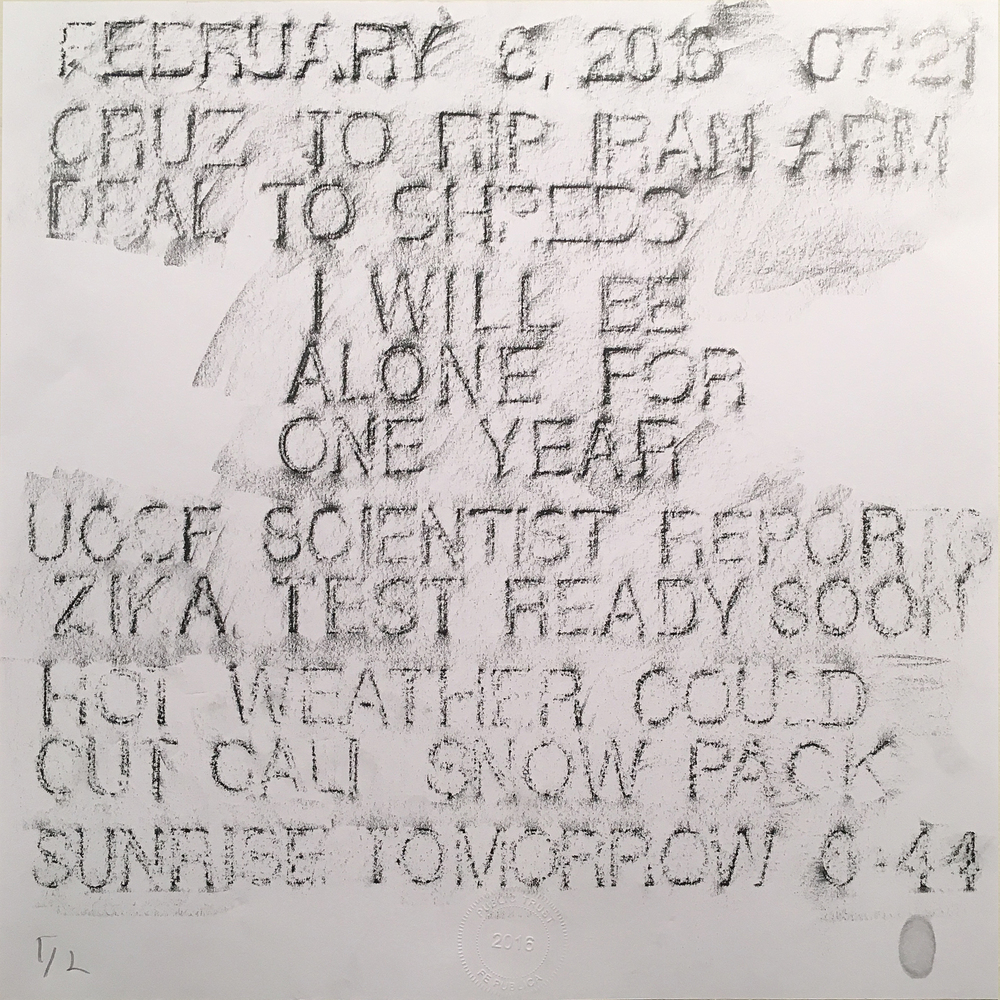 FEBRUARY 8, 2016 07:21
CRUZ TO RIP IRAN ARM
DEAL TO SHREDS
I WILL BE
ALONE FOR
ONE YEAR
UCSF SCIENTIST REPORTS
ZIKA TEST READY SOON
HOT WEATHER COULD
CUT CALI SNOW PACK
SUNRISE TOMORROW 6:44
2016
REPUBLICA
1/2